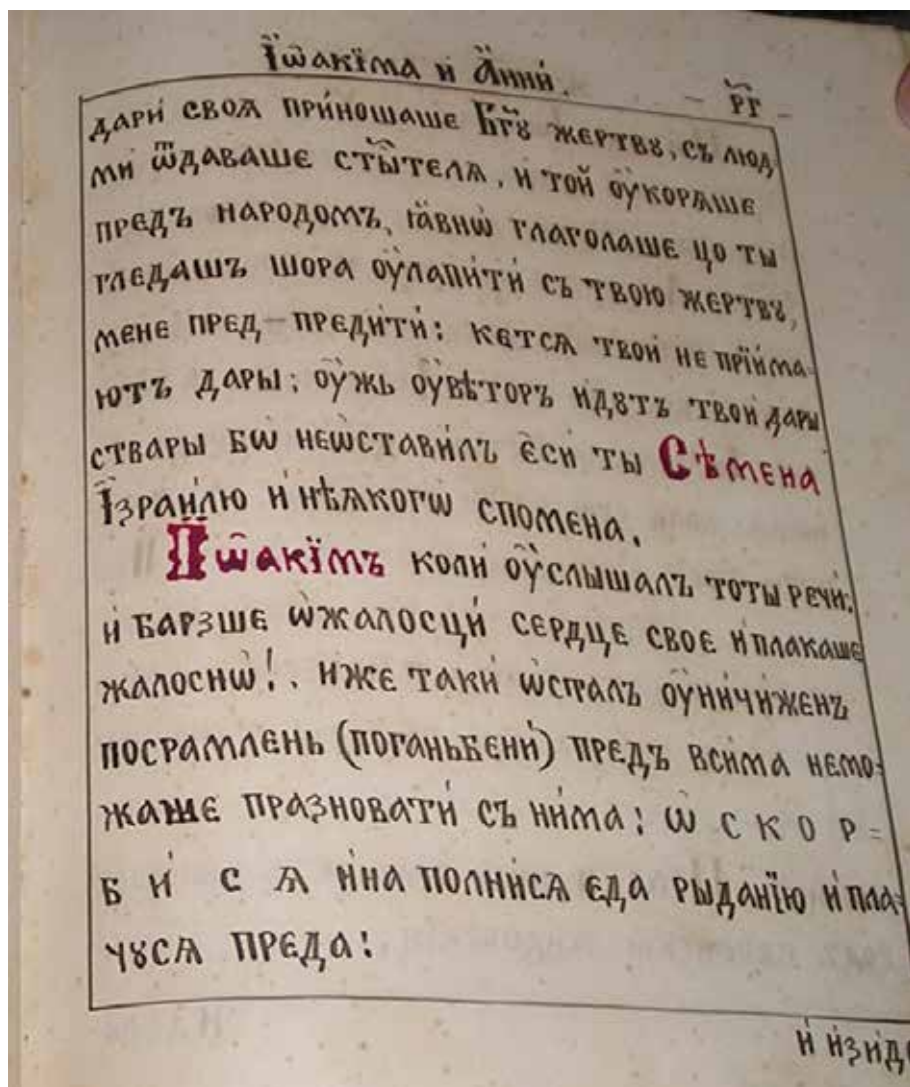 І҆ѡ҆акїма и А҆нни́.
р҃г
дари́ своѧ при́ношаше Бг҃ꙋ жертвꙋ, съ люд-
ми ѿдаваше ст҃ы́телѧ, и҆ той оу҆корѧше
предъ народомъ, ꙗ҆внѡ глаголаше цо ты
гледашъ шора оу҆лапи́ти съ твою жертвꙋ,
мене пред-преди́ти́: кетсѧ твои не прїи́ма-
ютъ дары; оу҆жь оу҆вѣторъ и҆дꙋтъ твои дары
ствары бѡ неѡставилъ є҆си́ ты Сѣмена
І҆зраи́лю и҆ нѣѧкогѡ спомена.
І҆ѡ҆акїмъ коли́ оу҆слышалъ тоты речи́:
и҆ барзше ѡ҆жалосци́ сердце свое и҆ плакаше
жалоснѡ! . и҆же таки́ ѡ҆сталъ оу҆ни́чи́женъ
посрамлень (поганьбени́) предъ всима немо-
жаше празновати́ съ ни́ма: ѡ с к о р =
б и҆ с ѧ и҆на полни́сѧ єда рыданїю и҆ пла-
чꙋсѧ преда!
и҆ и҆зи́де